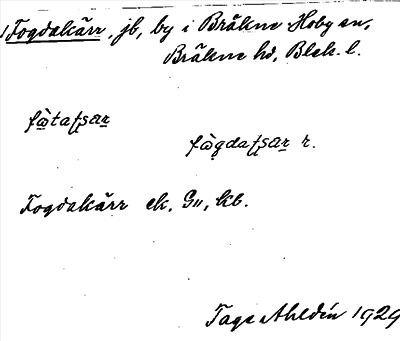 Fogdakärr, jb, by i Bräkne Hoby sn,
Bräkne hd, Blek. l.
fὼtaʄʂaꭇ
fὼgdaʄʂaꭇ r.
Fogdakärr ek. G11, kb.
Tage Ahldén 1929